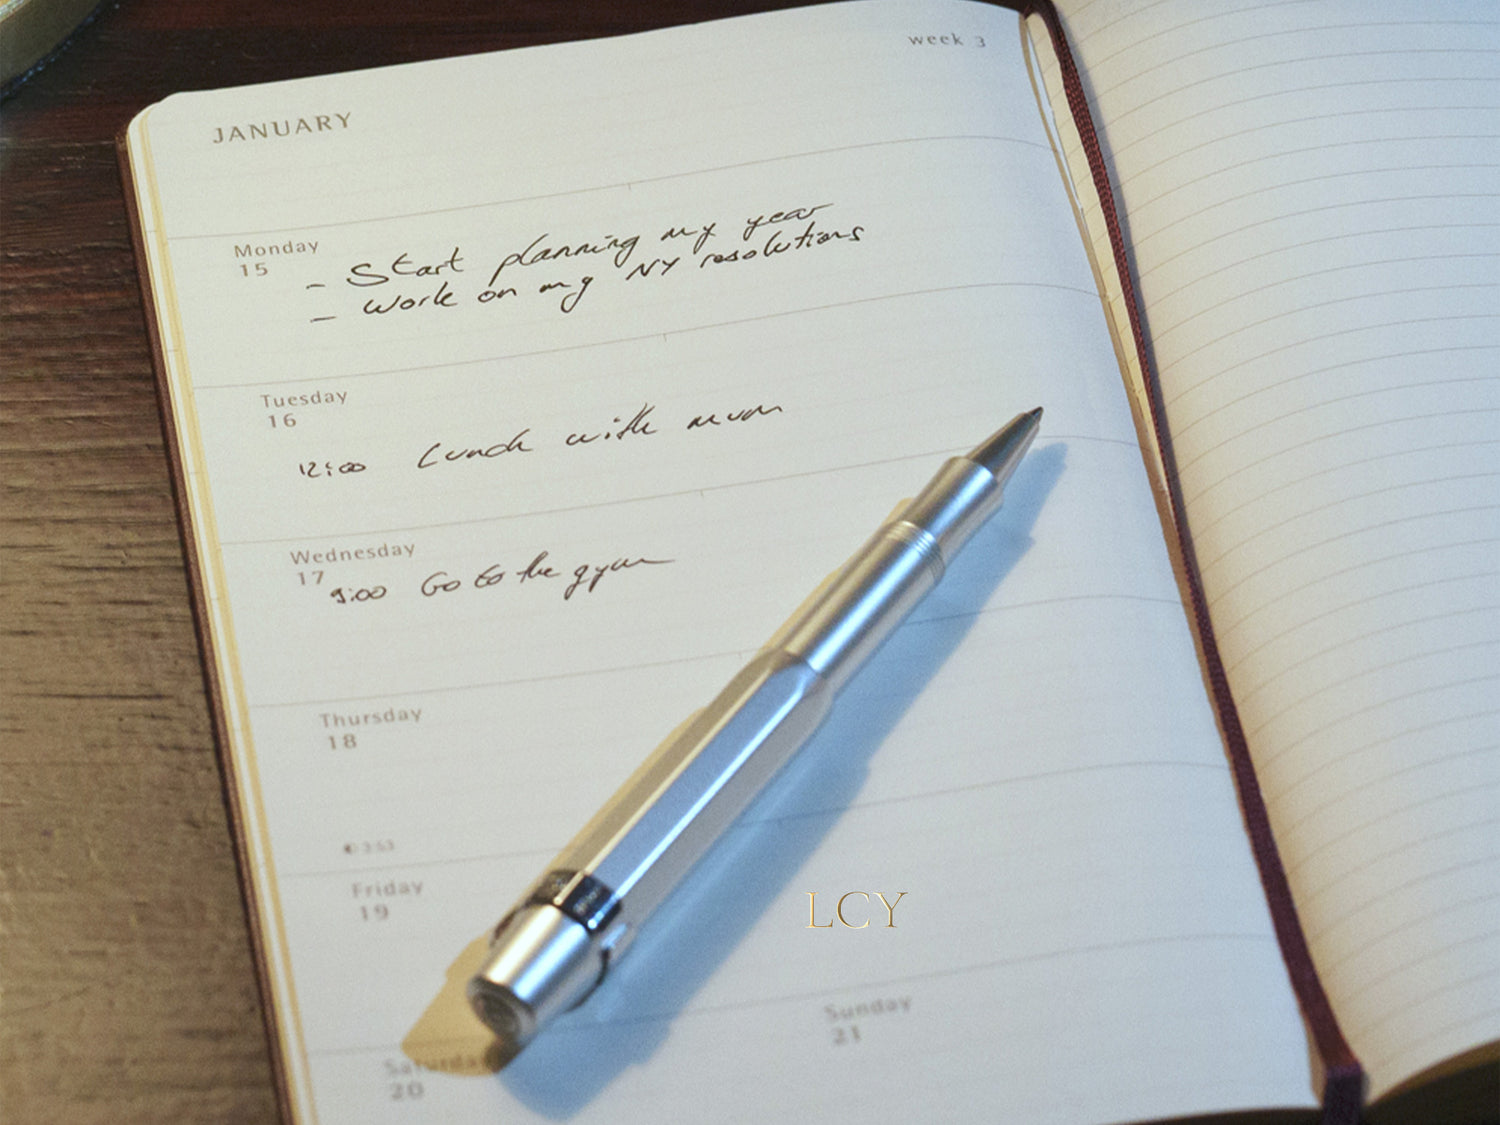 week 3
JANUARY
Monday
15
- Start planning my year
- work on my NY resolutions
Tuesday
16
12:00 Lunch with mum
Wednesday
17
9:00 Go to the gym
Thursday
18
Friday
19
LCY
Saturday
20
Sunday
21